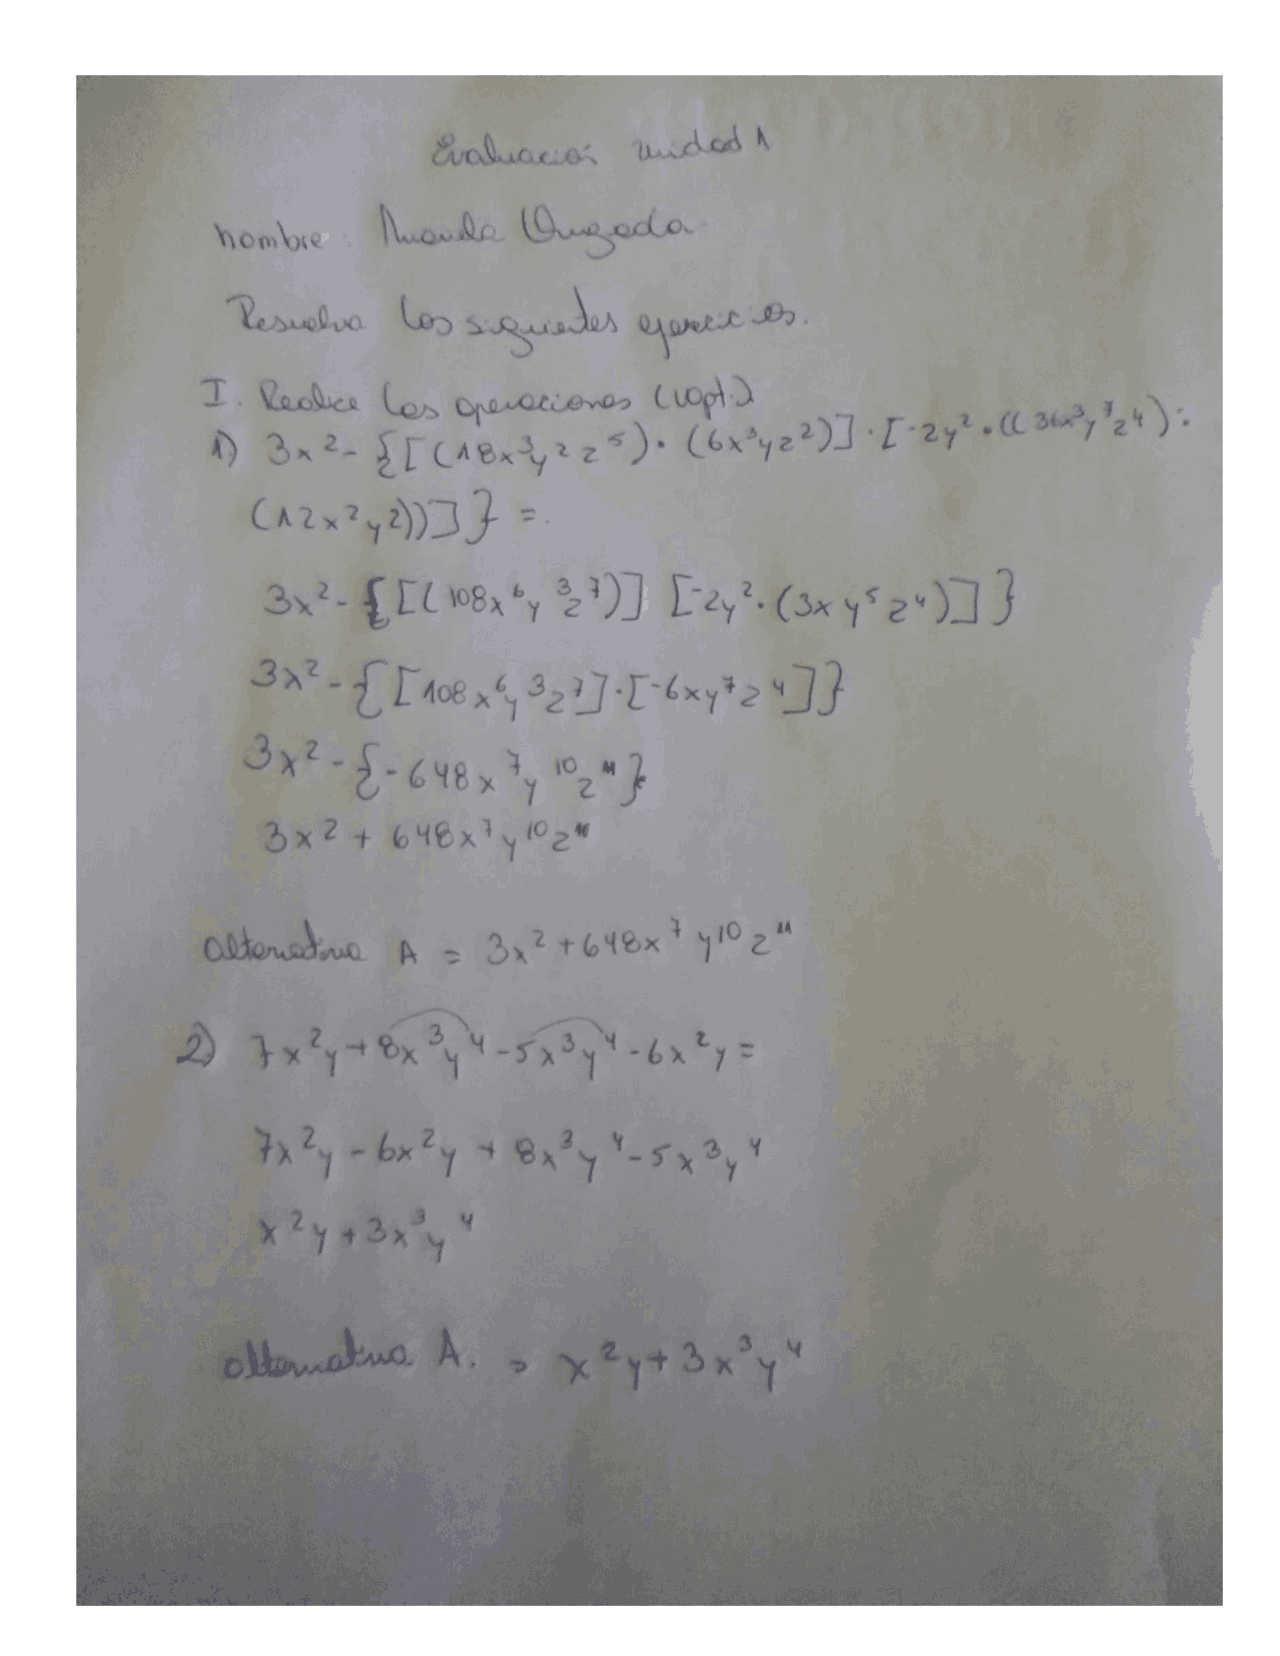 Evaluación unidad 1
nombre: Quezada
Resuelva los siguientes ejercicios.
I. Realice las operaciones (10pt.)
1) 3x² - {[(18x³y²z⁵) · (6x³yz²)] · [-2y² · ((36x³y⁷z⁴) :
(12x²y²))]} =.
3x² - {[(108x⁶y³z⁷)] [-2y² · (3xy⁵z⁴)]}
3x² - {[108x⁶y³z⁷] · [-6xy⁷z⁴]}
3x² - {-648x⁷y¹⁰z¹¹}
3x² + 648x⁷y¹⁰z¹¹
alternativa A = 3x² + 648x⁷y¹⁰z¹¹
2) 7x²y + 8x³y⁴ - 5x³y⁴ - 6x²y =
7x²y - 6x²y + 8x³y⁴ - 5x³y⁴
x²y + 3x³y⁴
alternativa A. = x²y + 3x³y⁴